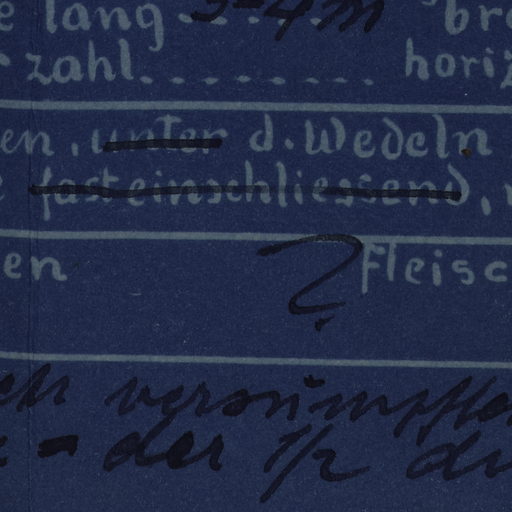 e lang 3-4m br
zahl horiz
en, unter d. Wedeln
fast einschliessend,
en ? Fleisc
ch versümpften
- der 1/2 du